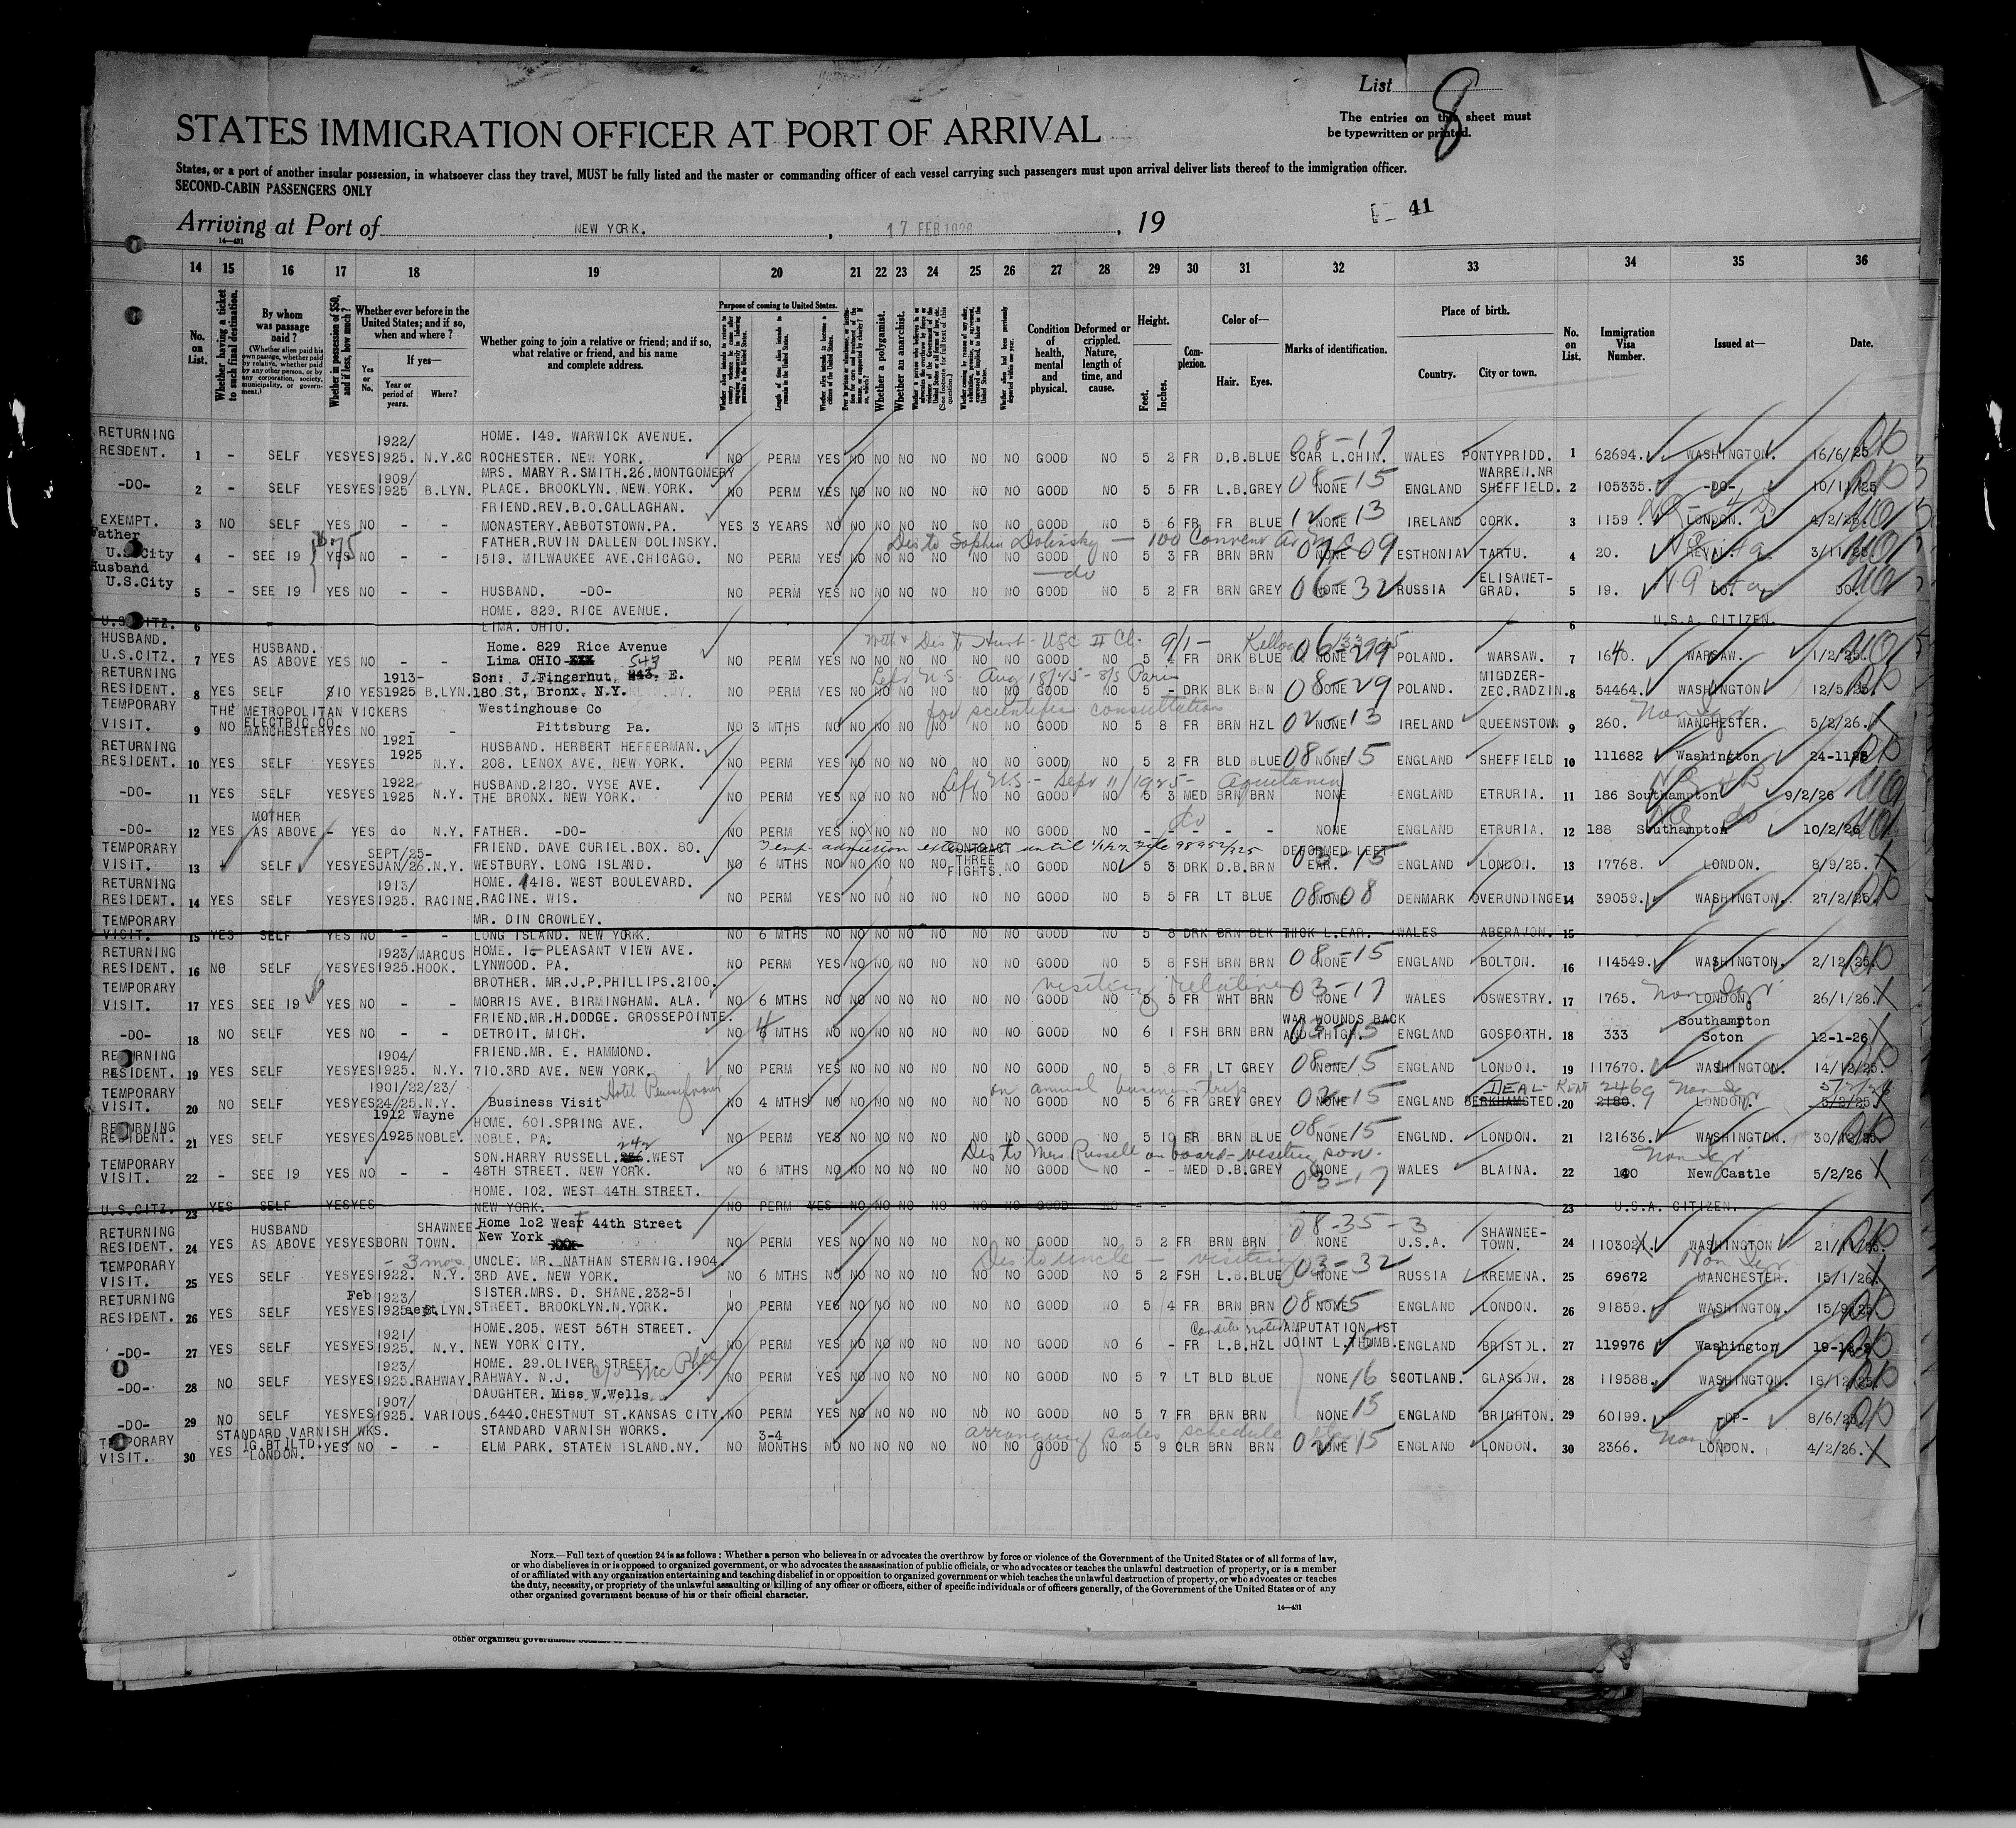 List 8
The entries on this sheet must
be typewritten or printed.
STATES IMMIGRATION OFFICER AT PORT OF ARRIVAL
States, or a port of another insular possession, in whatsoever class they travel, MUST be fully listed and the master or commanding officer of each vessel carrying such passengers must upon arrival deliver lists thereof to the immigration officer.
SECOND-CABIN PASSENGERS ONLY
Arriving at Port of NEW YORK. , 17 FEB 1926 , 19
41
14—431
14 15 16 17 18 19 20 21 22 23 24 25 26 27 28 29 30 31 32 33 34 35 36
No. on List.
Whether having a ticket to such final destination.
By whom was passage paid?
(Whether alien paid his own passage, whether paid by relative, whether paid by any other person, or by any corporation, society, municipality, or government.)
Whether in possession of $50, and if less, how much?
Whether ever before in the United States; and if so, when and where?
If yes—
Yes or No.
Year or period of years.
Where?
Whether going to join a relative or friend; and if so, what relative or friend, and his name and complete address.
Purpose of coming to United States.
Length of time alien intends to remain in the United States.
Whether a polygamist.
Whether an anarchist.
Condition of health, mental and physical.
Deformed or crippled. Nature, length of time, and cause.
Height.
Feet. Inches.
Complexion.
Color of—
Hair. Eyes.
Marks of identification.
Place of birth.
Country. City or town.
No. on List.
Immigration Visa Number.
Issued at—
Date.
RETURNING 1922/ HOME. 149. WARWICK AVENUE. 08-17
RESIDENT. 1 - SELF YES YES 1925. N.Y.&C ROCHESTER. NEW YORK. NO PERM YES NO NO NO NO NO NO GOOD NO 5 2 FR D.B. BLUE SCAR L.CHIN. WALES PONTYPRIDD. 1 62694. WASHINGTON. 16/6/25
1909/ MRS. MARY R.SMITH.26.MONTGOMERY 08-15 WARREN.NR
-DO- 2 - SELF YES YES 1925 B.LYN. PLACE. BROOKLYN. NEW YORK. NO PERM YES NO NO NO NO NO NO GOOD NO 5 5 FR L.B. GREY NONE ENGLAND SHEFFIELD. 2 105335. -DO- 10/11/25
FRIEND.REV.B.O.CALLAGHAN. 12-13
EXEMPT. 3 NO SELF YES NO - - MONASTERY.ABBOTSTOWN.PA. YES 3 YEARS NO NO NO NO NO NO NO GOOD NO 5 6 FR FR BLUE NONE IRELAND CORK. 3 1159. LONDON. 4/2/26.
Father FATHER.RUVIN DALLEN DOLINSKY. Dis to Sophin Dolinsky
U.S.City 4 - SEE 19 YES NO - - 1519. MILWAUKEE AVE.CHICAGO. NO PERM YES NO NO NO NO NO NO GOOD NO 5 3 FR BRN BRN NONE ESTHONIA TARTU. 4 20. REVAL. 3/11/25.
Husband do 06-32 ELISAWET-
U.S.City 5 - SEE 19 YES NO - - HUSBAND. -DO- NO PERM YES NO NO NO NO NO NO GOOD NO 5 2 FR BRN GREY NONE RUSSIA GRAD. 5 19. DO.
HOME. 829. RICE AVENUE.
U.S.CITZ. 6 LIMA. OHIO. 6 U.S.A. CITIZEN.
HUSBAND. HUSBAND. Home. 829 Rice Avenue 06-29
U.S.CITZ. 7 YES AS ABOVE YES NO - - Lima OHIO NO PERM YES NO NO NO NO NO NO GOOD NO 5 4 FR DRK BLUE NONE POLAND. WARSAW. 7 1640. WARSAW. 1/2/25.
RETURNING 1913- Son: J.Fingerhut, 543 E. Left U.S. Aug 18/25 - S/S Paris 08-29 MIGDZER-
RESIDENT. 8 YES SELF $10 YES 1925 B.LYN. 180 St, Bronx, N.Y. NO PERM YES NO NO NO NO NO NO GOOD NO 5 - DRK BLK BRN NONE POLAND. ZEC.RADZIN. 8 54464. WASHINGTON 12/5/25
TEMPORARY THE METROPOLITAN VICKERS Westinghouse Co for scientific consultation 02-13
VISIT. 9 NO ELECTRIC CO. MANCHESTER YES NO - - Pittsburg Pa. NO 3 MTHS NO NO NO NO NO NO NO GOOD NO 5 8 FR BRN HZL NONE IRELAND QUEENSTOWN 9 260. MANCHESTER. 5/2/26.
RETURNING 1921 HUSBAND. HERBERT HEFFERMAN. 08-15
RESIDENT. 10 YES SELF YES YES 1925 N.Y. 208. LENOX AVE. NEW YORK. NO PERM YES NO NO NO NO NO NO GOOD NO 5 2 FR BLD BLUE NONE ENGLAND SHEFFIELD 10 111682 Washington 24-11
1922 HUSBAND.2120. VYSE AVE. Left U.S. - Sept 11/1925 - Aquitania
-DO- 11 YES SELF YES YES 1925 N.Y. THE BRONX. NEW YORK. NO PERM YES NO NO NO NO NO NO GOOD NO 5 3 MED BRN BRN NONE ENGLAND ETRURIA. 11 186 Southampton 9/2/26
MOTHER do
-DO- 12 YES AS ABOVE - YES do N.Y. FATHER. -DO- NO PERM YES NO NO NO NO NO NO GOOD NO - - - - - NONE ENGLAND ETRURIA. 12 188 Southampton 10/2/26
TEMPORARY SEPT/25- FRIEND. DAVE CURIEL.BOX. 80. Temp admission extended until CONTRACT THREE FIGHTS. DEFORMED LEFT 03-15
VISIT. 13 SELF YES YES JAN/26. N.Y. WESTBURY. LONG ISLAND. NO 6 MTHS NO NO NO NO NO NO GOOD NO 5 3 DRK D.B. BRN EAR. ENGLAND LONDON. 13 17768. LONDON. 8/9/25.
RETURNING 1913/ HOME. 1418. WEST BOULEVARD. 08-08
RESIDENT. 14 YES SELF YES YES 1925. RACINE. RACINE. WIS. NO PERM YES NO NO NO NO NO NO GOOD NO 5 5 FR LT BLUE NONE DENMARK OVERUNDINGE 14 39059. WASHINGTON. 27/2/25
TEMPORARY MR. DIN CROWLEY.
VISIT. 15 YES SELF YES NO - - LONG ISLAND. NEW YORK. NO 6 MTHS NO NO NO NO NO NO NO GOOD NO 5 8 DRK BRN BLK THICK L.EAR. WALES ABERAVON. 15
RETURNING 1923/ MARCUS HOME. PLEASANT VIEW AVE. 08-15
RESIDENT. 16 NO SELF YES YES 1925. HOOK. LYNWOOD. PA. NO PERM YES NO NO NO NO NO NO GOOD NO 5 8 FSH BRN BRN NONE ENGLAND BOLTON. 16 114549. WASHINGTON. 2/12/25
TEMPORARY BROTHER. MR.J.P.PHILLIPS.2100. visiting relative 03-17
VISIT. 17 YES SEE 19 YES NO - - MORRIS AVE. BIRMINGHAM. ALA. NO 6 MTHS NO NO NO NO NO NO NO GOOD NO 5 5 FR WHT BRN NONE WALES OSWESTRY. 17 1765. LONDON. 26/1/26.
FRIEND.MR.H.DODGE. GROSSEPOINTE. WAR WOUNDS BACK 03-15 Southampton
-DO- 18 NO SELF YES NO - - DETROIT. MICH. NO MTHS NO NO NO NO NO NO NO GOOD NO 6 1 FSH BRN BRN AND THIGH. ENGLAND GOSFORTH. 18 333 Soton 12-1-26
RETURNING 1904/ FRIEND.MR. E. HAMMOND. 08-15
RESIDENT. 19 YES SELF YES YES 1925. N.Y. 710.3RD AVE. NEW YORK. NO PERM YES NO NO NO NO NO NO GOOD NO 5 8 FR LT GREY NONE ENGLAND LONDON. 19 117670. WASHINGTON. 14/12/25
TEMPORARY 1901/22/23/ Hotel Pennsylvania on annual business trip 02-15 DEAL - KENT 2469
VISIT. 20 NO SELF YES YES 24/25. N.Y. Business Visit NO 4 MTHS NO NO NO NO NO NO NO GOOD NO 5 6 FR GREY GREY NONE ENGLAND BERKHAMSTED. 20 2180. LONDON.
RETURNING 1912 Wayne HOME. 601.SPRING AVE. 08-15
RESIDENT. 21 YES SELF YES YES 1925 NOBLE. NOBLE. PA. NO PERM YES NO NO NO NO NO NO GOOD NO 5 10 FR BRN BLUE NONE ENGLND. LONDON. 21 121636. WASHINGTON. 30/12/25
TEMPORARY SON.HARRY RUSSELL. 242 WEST Dis to Mrs Russell on board - visiting son.
VISIT. 22 - SEE 19 YES NO - - 48TH STREET. NEW YORK. NO 6 MTHS NO NO NO NO NO NO NO GOOD NO - - MED D.B. GREY NONE 03-17 WALES BLAINA. 22 New Castle 5/2/26
HOME. 102. WEST 44TH STREET.
U.S.CITZ. 23 YES SELF YES YES NEW YORK. NO PERM YES NO NO NO NO NO NO GOOD NO - - 23 U.S.A. CITIZEN.
RETURNING HUSBAND SHAWNEE Home 1o2 West 44th Street 08-35-3 SHAWNEE-
RESIDENT. 24 YES AS ABOVE YES YES BORN TOWN. New York NO PERM YES NO NO NO NO NO NO GOOD NO 5 2 FR BRN BRN NONE U.S.A. TOWN. 24 110302. WASHINGTON
TEMPORARY - 3 mos. UNCLE. MR. NATHAN STERNIG.1904. Dis to uncle - visiting 03-32
VISIT. 25 YES SELF YES YES 1922. N.Y. 3RD AVE. NEW YORK. NO 6 MTHS NO NO NO NO NO NO NO GOOD NO 5 2 FSH L.B. BLUE NONE RUSSIA KREMENA. 25 69672 MANCHESTER. 15/1/26
RETURNING Feb 1923/ SISTER.MRS. D. SHANE.232-51
RESIDENT. 26 YES SELF YES YES 1925 sept. B.LYN. STREET. BROOKLYN.N.YORK. NO PERM YES NO NO NO NO NO NO GOOD NO 5 4 FR BRN BRN NONE ENGLAND LONDON. 26 91859. WASHINGTON. 15/9/25
1921/ HOME.205. WEST 56TH STREET. AMPUTATION 1ST
-DO- 27 YES SELF YES YES 1925. N.Y. NEW YORK CITY. NO PERM YES NO NO NO NO NO NO GOOD NO 6 - FR L.B. HZL JOINT L.THUMB. ENGLAND BRISTOL. 27 119976 Washington
1923/ HOME. 29.OLIVER STREET. c/o McPhee
-DO- 28 NO SELF YES YES 1925. RAHWAY. RAHWAY. N.J. NO PERM YES NO NO NO NO NO NO GOOD NO 5 7 LT BLD BLUE NONE 16 SCOTLAND. GLASGOW. 28 119588. WASHINGTON. 18/12/25
1907/ DAUGHTER. Miss W.Wells.
-DO- 29 NO SELF YES YES 1925. VARIOUS. 6440.CHESTNUT ST.KANSAS CITY. NO PERM YES NO NO NO NO NO NO GOOD NO 5 7 FR BRN BRN NONE 15 ENGLAND BRIGHTON. 29 60199. -DO- 8/6/25
TEMPORARY STANDARD VARNISH WKS. STANDARD VARNISH WORKS. 3-4 arranging sales schedule 02-15
VISIT. 30 YES LONDON. YES NO - - ELM PARK. STATEN ISLAND.NY. NO MONTHS NO NO NO NO NO NO NO GOOD NO 5 9 CLR BRN BRN NONE ENGLAND LONDON. 30 2366. LONDON. 4/2/26.
NOTE.—Full text of question 24 is as follows: Whether a person who believes in or advocates the overthrow by force or violence of the Government of the United States or of all forms of law,
or who disbelieves in or is opposed to organized government, or who advocates the assassination of public officials, or who advocates or teaches the unlawful destruction of property, or is a member
of or affiliated with any organization entertaining and teaching disbelief in or opposition to organized government or which teaches the unlawful destruction of property, or who advocates or teaches
the duty, necessity, or propriety of the unlawful assaulting or killing of any officer or officers, either of specific individuals or of officers generally, of the Government of the United States or of any
other organized government because of his or their official character.
14—431